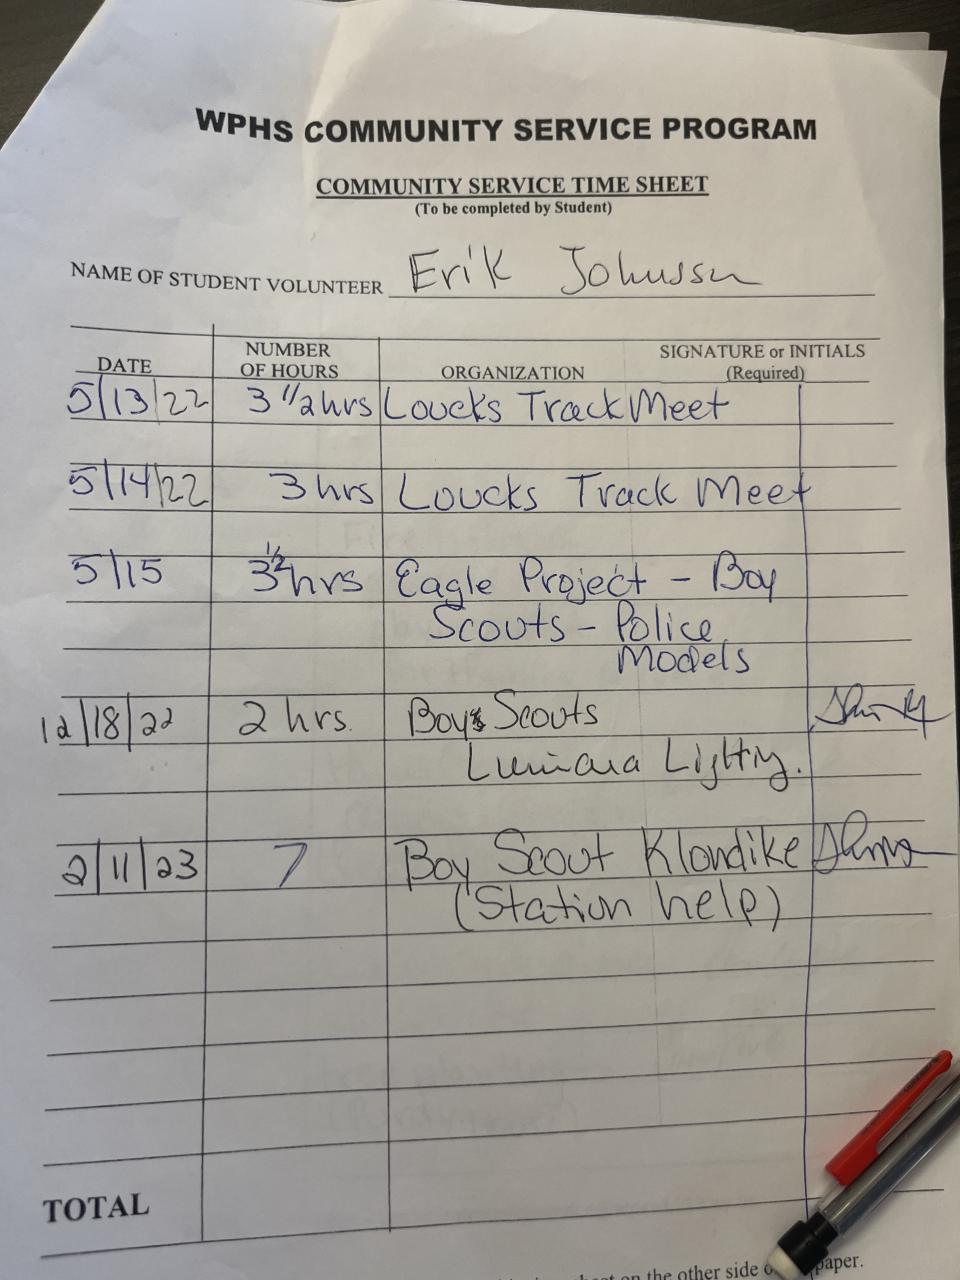 WPHS COMMUNITY SERVICE PROGRAM
COMMUNITY SERVICE TIME SHEET
(To be completed by Student)
NAME OF STUDENT VOLUNTEER Erik Johnssn
DATE NUMBER OF HOURS ORGANIZATION SIGNATURE or INITIALS (Required)
5/13/22 3 1/2 hrs Loucks Track Meet
5/14/22 3 hrs Loucks Track Meet
5/15 3 1/2 hrs Eagle Project - Boy
Scouts - Police
Models
12/18/22 2 hrs. Boy Scouts
Luminara Lighting.
2/11/23 7 Boy Scout Klondike
(Station help)
TOTAL
on the other side paper.